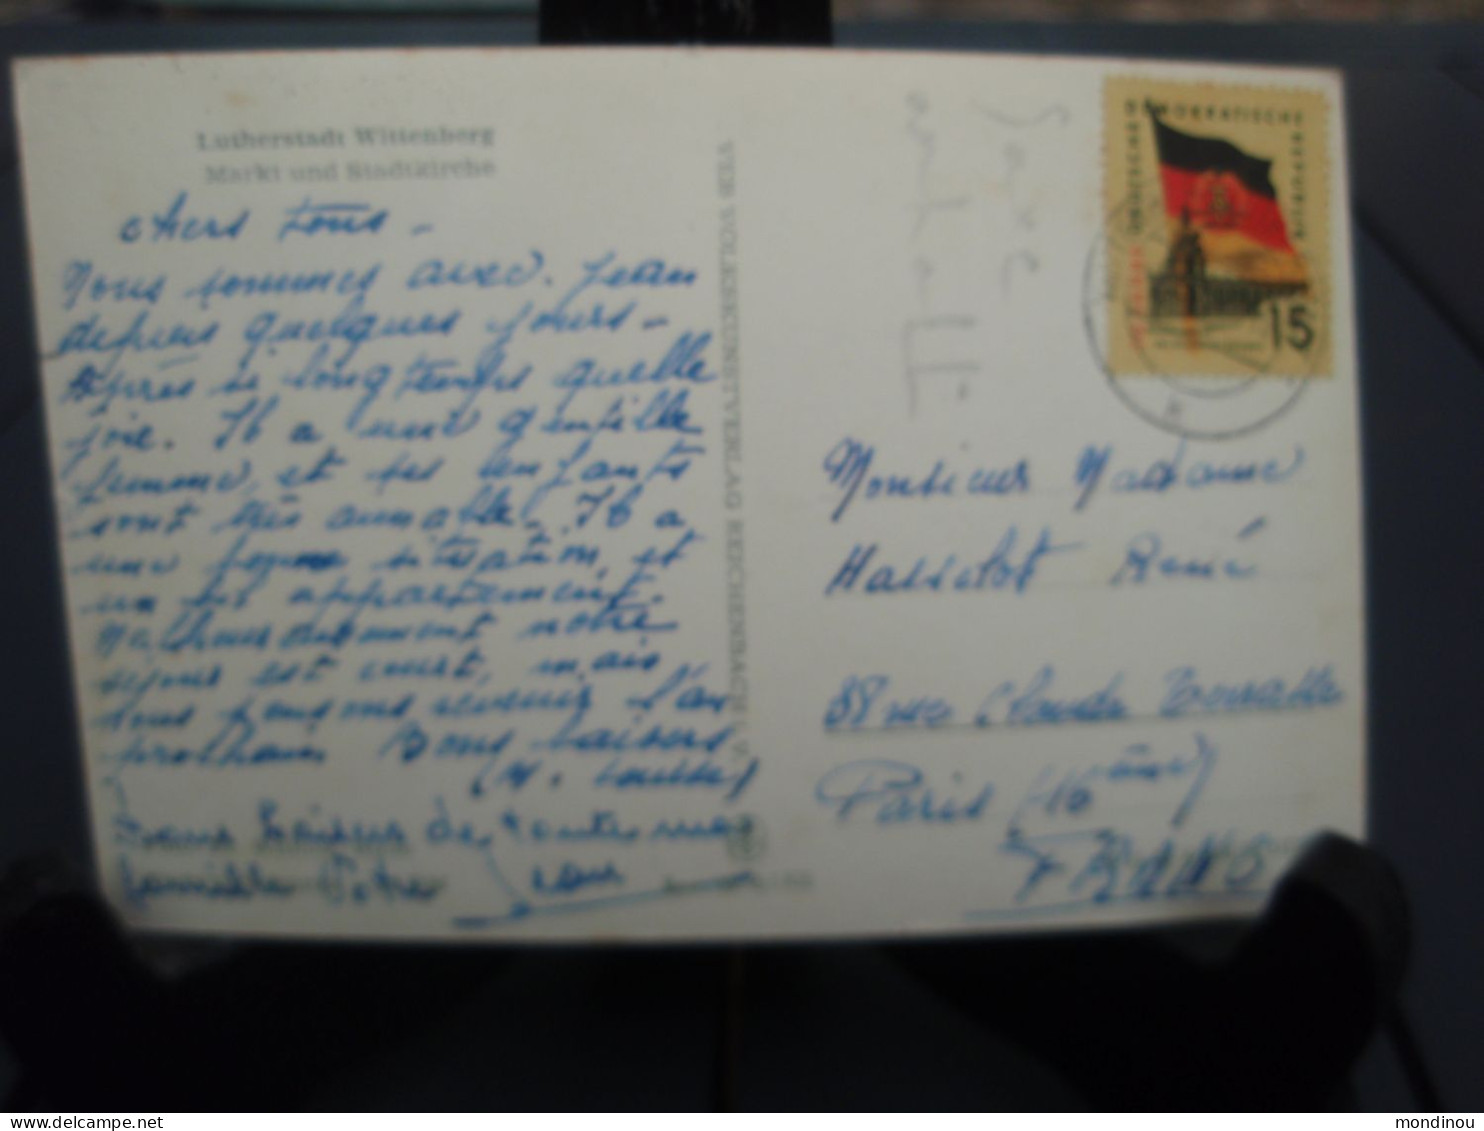 Lutherstadt Wittenberg
Markt und Stadtkirche
chers tous -
Nous sommes avec Jean
depuis quelques jours -
Après si longtemps quelle
joie. Il a une gentille
femme, et ses enfants
sont très aimable. Il a
une bonne situation, et
un appartement.
Malheureusement notre
séjour est court, mais
nous pensons revenir l'an
prochain Bons baisers
M. Louise
Bons baisers de toutes mes
famille Votre Jean
VEB VOLKSKUNSTVERLAG REICHENBACH I. V.
DEUTSCHE DEMOKRATISCHE REPUBLIK
15
Monsieur Madame
Hasselot René
88 rue Claude Terrasse
Paris (16ème)
FRANCE
mondinou